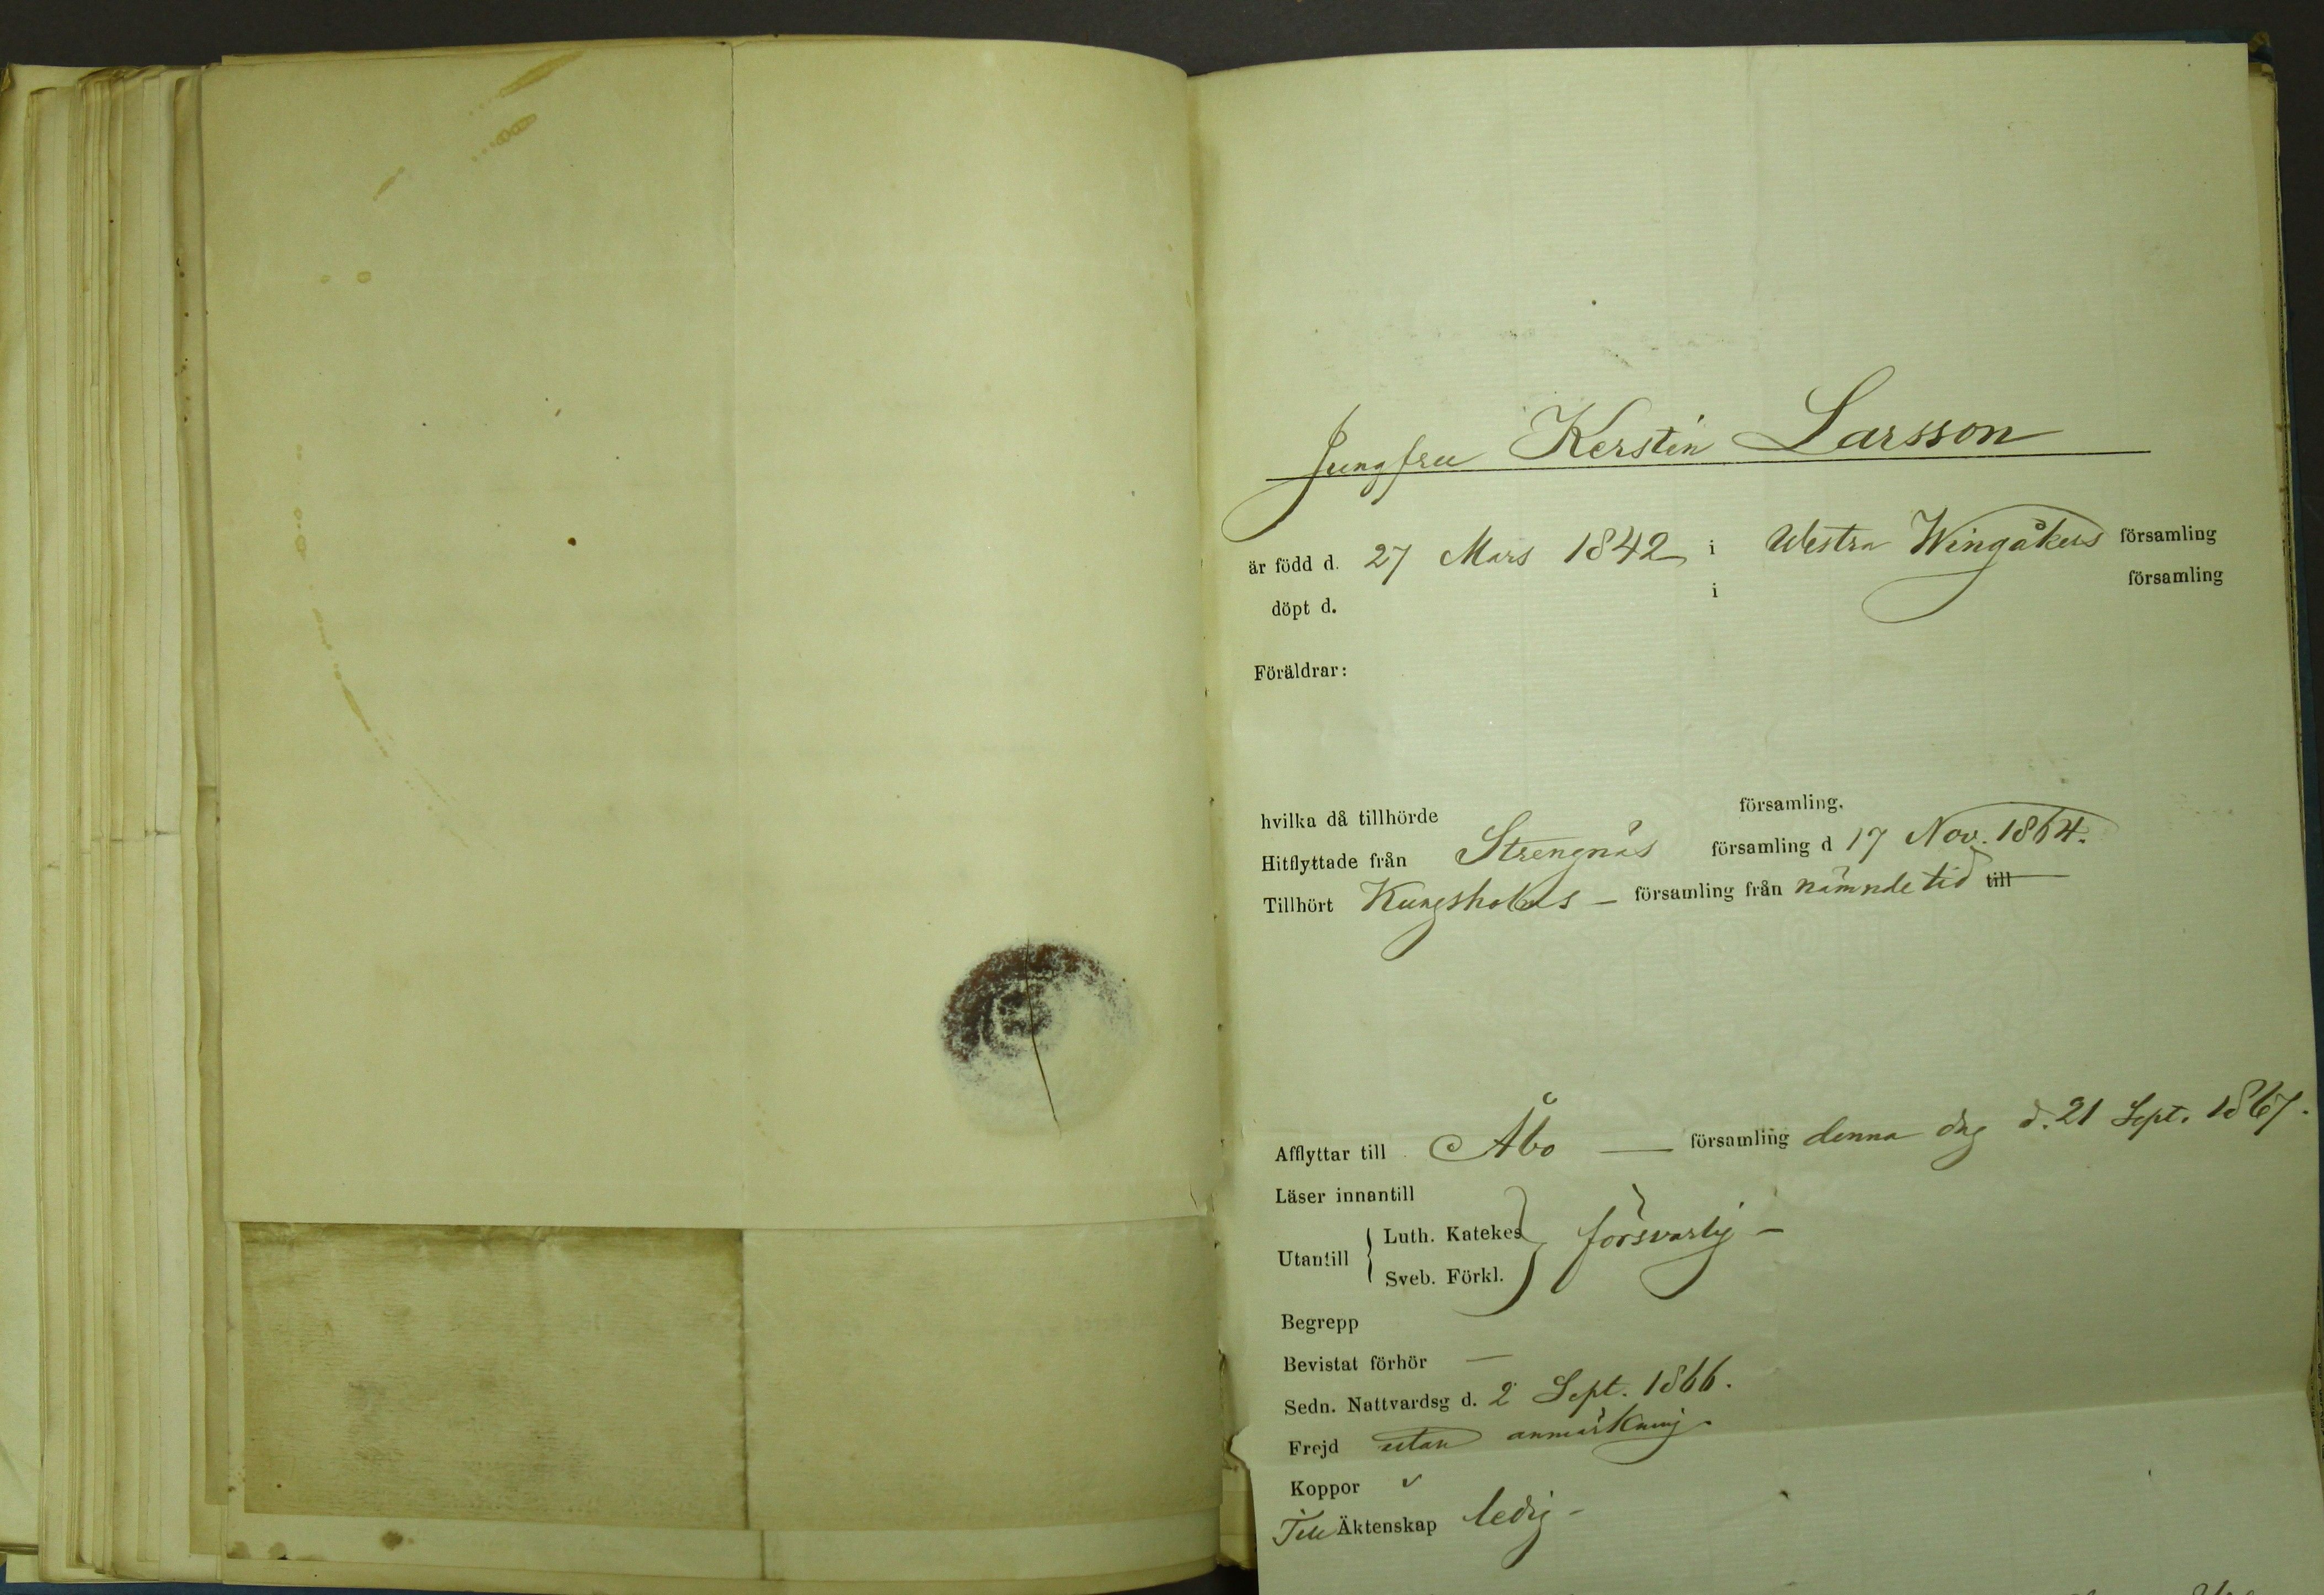 Jungfru Kerstin Larsson
är född d. 27 Mars 1842 i Westra Wingåkers församling
döpt d. i församling
Föräldrar:
hvilka då tillhörde församling.
Hitflyttade från Strengnäs församling d 17 Nov. 1864.
Tillhört Kungsholms – församling från nämnde tid till
Afflyttar till Åbo — församling denna dag d. 21 Sept. 1867.
Läser innantill
Utantill { Luth. Katekes } försvarlig –
Sveb. Förkl.
Begrepp
Bevistat förhör —
Sedn. Nattvardsg d. 2 Sept. 1866.
Frejd utan anmärkning.
Koppor
Till Äktenskap ledig –